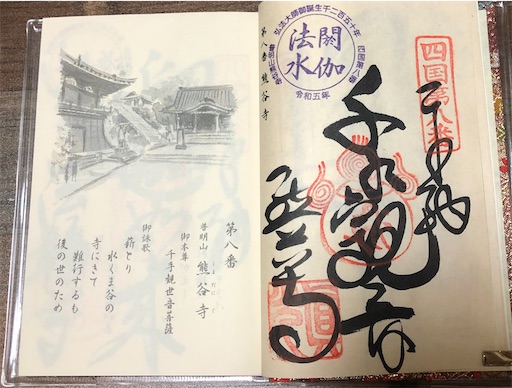 四国第八番
奉納
千手觀音
熊谷寺
弘法大師御誕生千二百五十年
四国第八番
閼伽
法水
普明山熊谷寺
令和五年
第八番 熊谷寺
第八番
普明山 熊谷寺
くまだにじ
御本尊
千手観世音菩薩
御詠歌
薪とり
水くま谷の
寺にきて
難行するも
後の世のため